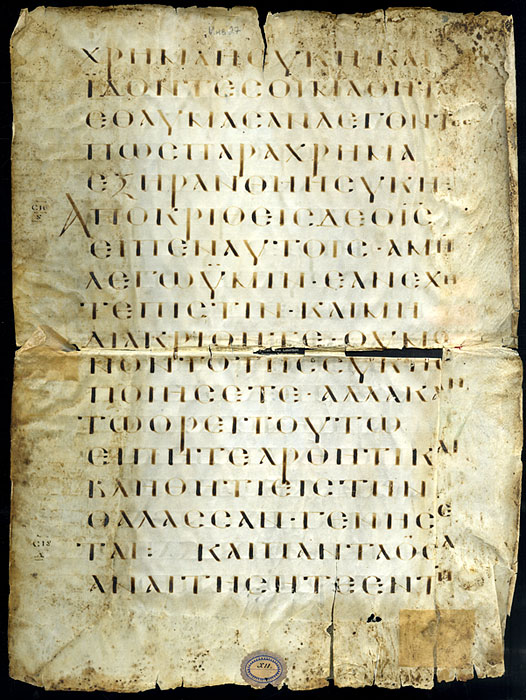 ΧΡΗΜΑΗϹΥΚΗ·ΚΑΙ
ΪΔΟΝΤΕϹΟΙΜΑΘΗΤΑΙ
ΕΘΑΥΜΑϹΑΝΛΕΓΟΝΤΕϹ
ΠΩϹΠΑΡΑΧΡΗΜΑ
ΕΞΗΡΑΝΘΗΗϹΥΚΗ
ΑΠΟΚΡΙΘΕΙϹΔΕΟΙϹ
ΕΙΠΕΝΑΥΤΟΙϹ·ΑΜΗΝ
ΛΕΓΩΫΜΙΝ·ΕΑΝΕΧΗ
ΤΕΠΙϹΤΙΝ·ΚΑΙΜΗ
ΔΙΑΚΡΙΘΗΤΕ·ΟΥΜΟ
ΝΟΝΤΟΤΗϹϹΥΚΗϹ
ΠΟΙΗϹΕΤΕ·ΑΛΛΑΚΑΝ
ΤΩΟΡΕΙΤΟΥΤΩ
ΕΙΠΗΤΕΑΡΘΗΤΙΚΑΙ
ΒΛΗΘΗΤΙΕΙϹΤΗΝ
ΘΑΛΑϹϹΑΝ·ΓΕΝΗϹΕ
ΤΑΙ: ΚΑΙΠΑΝΤΑΟϹΑ
ΑΝΑΙΤΗϹΗΤΕΕΝΤΗ
XII.